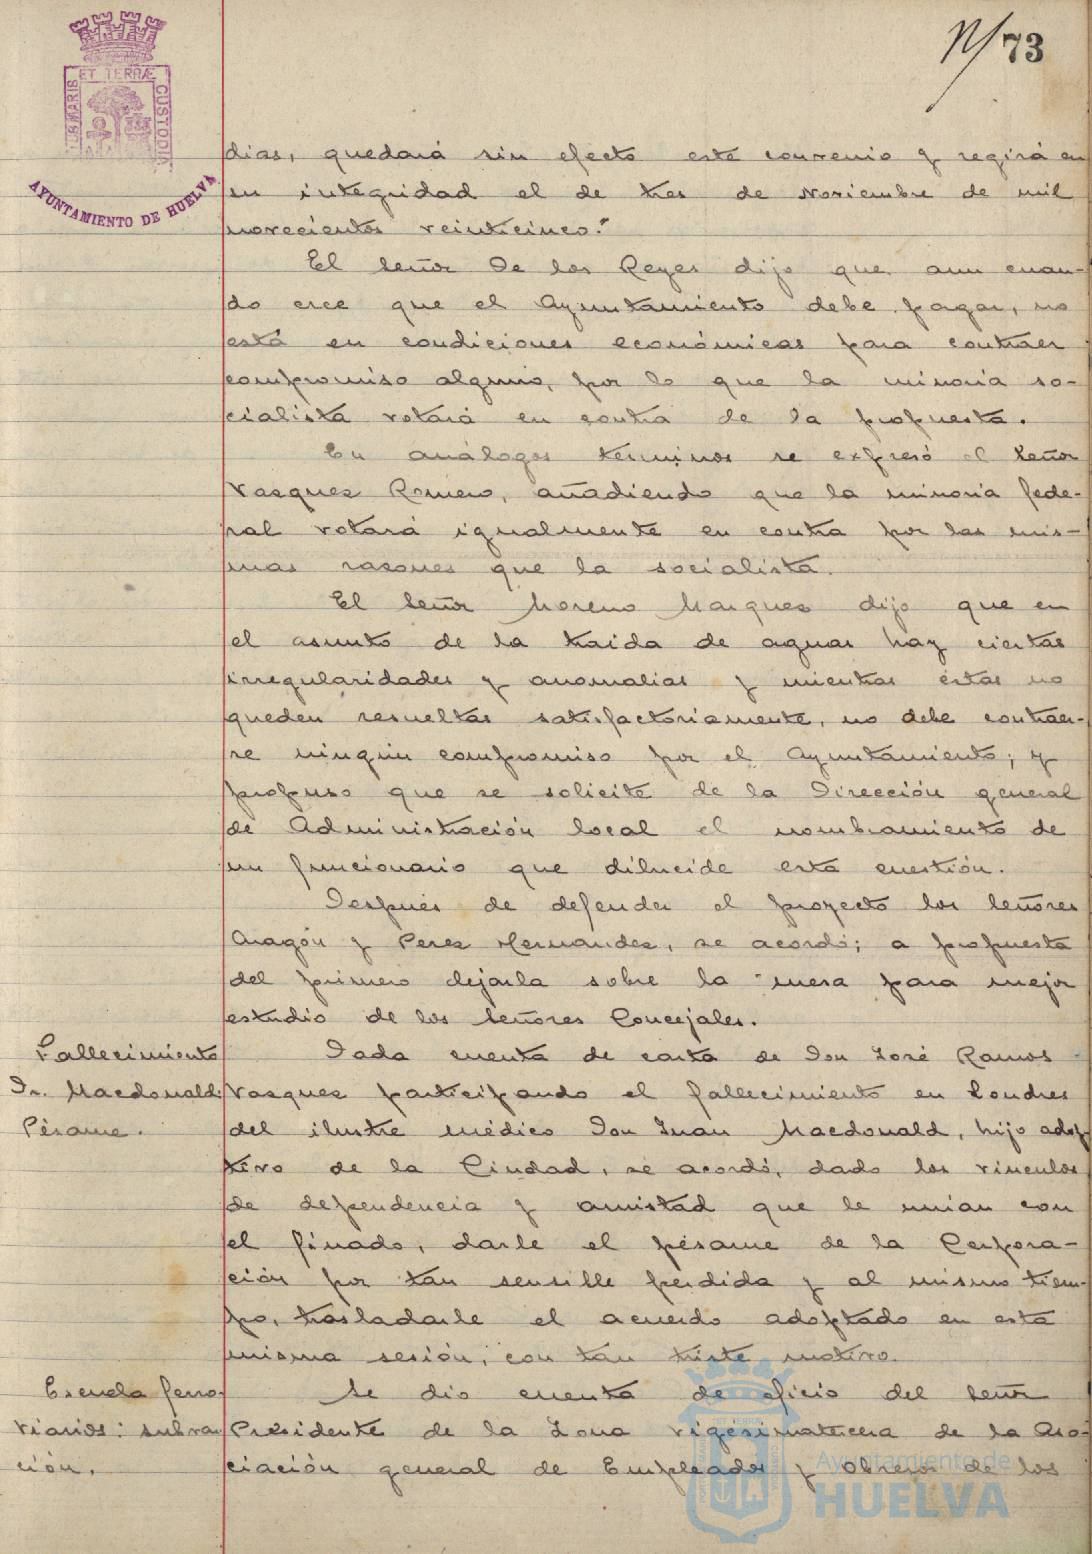 N/ 73
ET TERRÆ
CUSTODIA
AYUNTAMIENTO DE HUELVA
días, quedará sin efecto este convenio y regirá en
su integridad el de tres de Noviembre de mil
novecientos veinticinco."
El señor De los Reyes dijo que aun cuan-
do cree que el Ayuntamiento debe pagar, no
está en condiciones económicas para contraer
compromiso alguno, por lo que la minoría so-
cialista votará en contra de la propuesta.
En análogos términos se expresó el señor
Vasquez Romero, añadiendo que la minoría fede-
ral votará igualmente en contra por las mis-
mas rasones que la socialista.
El señor Moreno Marquez dijo que en
el asunto de la traida de aguas hay ciertas
irregularidades y anomalias y mientras éstas no
queden resueltas satisfactoriamente, no debe contraer-
se ningún compromiso por el Ayuntamiento; y
propuso que se solicite de la Dirección general
de Administración local el nombramiento de
un funcionario que dilucide esta cuestión.
Después de defender el proyecto los señores
Aragón y Perez Hernandez, se acordó; a propuesta
del primero dejarla sobre la mesa para mejor
estudio de los señores Concejales.
Fallecimiento
Dr. Macdonald:
Pésame.
Dada cuenta de carta de Don José Ramos
Vasquez participando el fallecimiento en Londres
del ilustre médico Don Juan Macdonald, hijo adop-
tivo de la Ciudad, se acordó, dado los vinculos
de dependencia y amistad que le unian con
el finado, darle el pésame de la Corpora-
ción por tan sensible perdida y al mismo tiem-
po, trasladarle el acuerdo adoptado en esta
misma sesión, con tan triste motivo.
Escuela ferro-
viarios: subven-
ción.
Se dio cuenta de oficio del señor
Presidente de la Zona vigesimatercera de la Aso-
ciación general de Empleados y Obreros de los
Ayuntamiento de
HUELVA